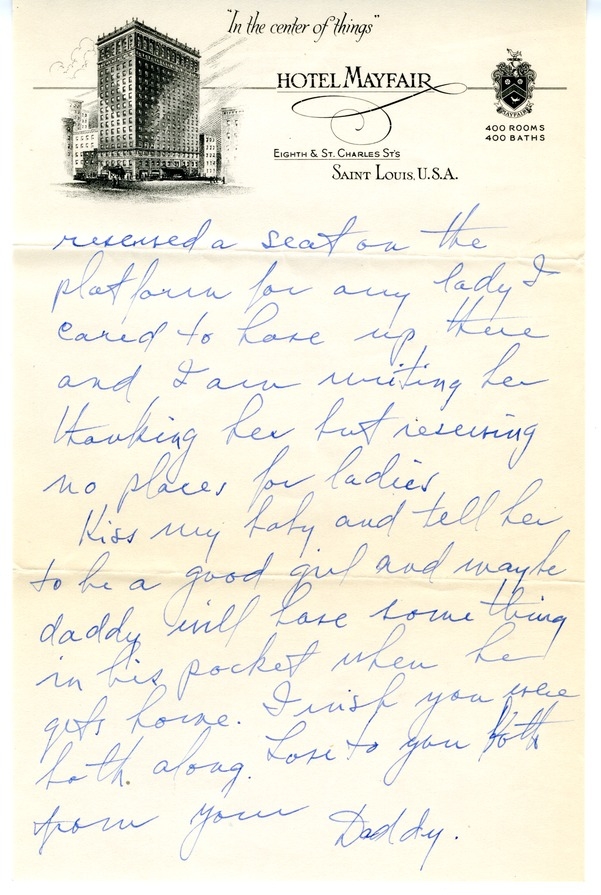 "In the center of things"
HOTEL MAYFAIR
EIGHTH & ST. CHARLES ST'S
SAINT LOUIS, U.S.A.
MAYFAIR
400 ROOMS
400 BATHS
reserved a seat on the
platform for any lady I
cared to have up there
and I am writing her
thanking her but reserving
no places for ladies
Kiss my baby and tell her
to be a good girl and maybe
daddy will have something
in his pocket when he
gets home. I wish you were
both along. Love to you both
from your Daddy.